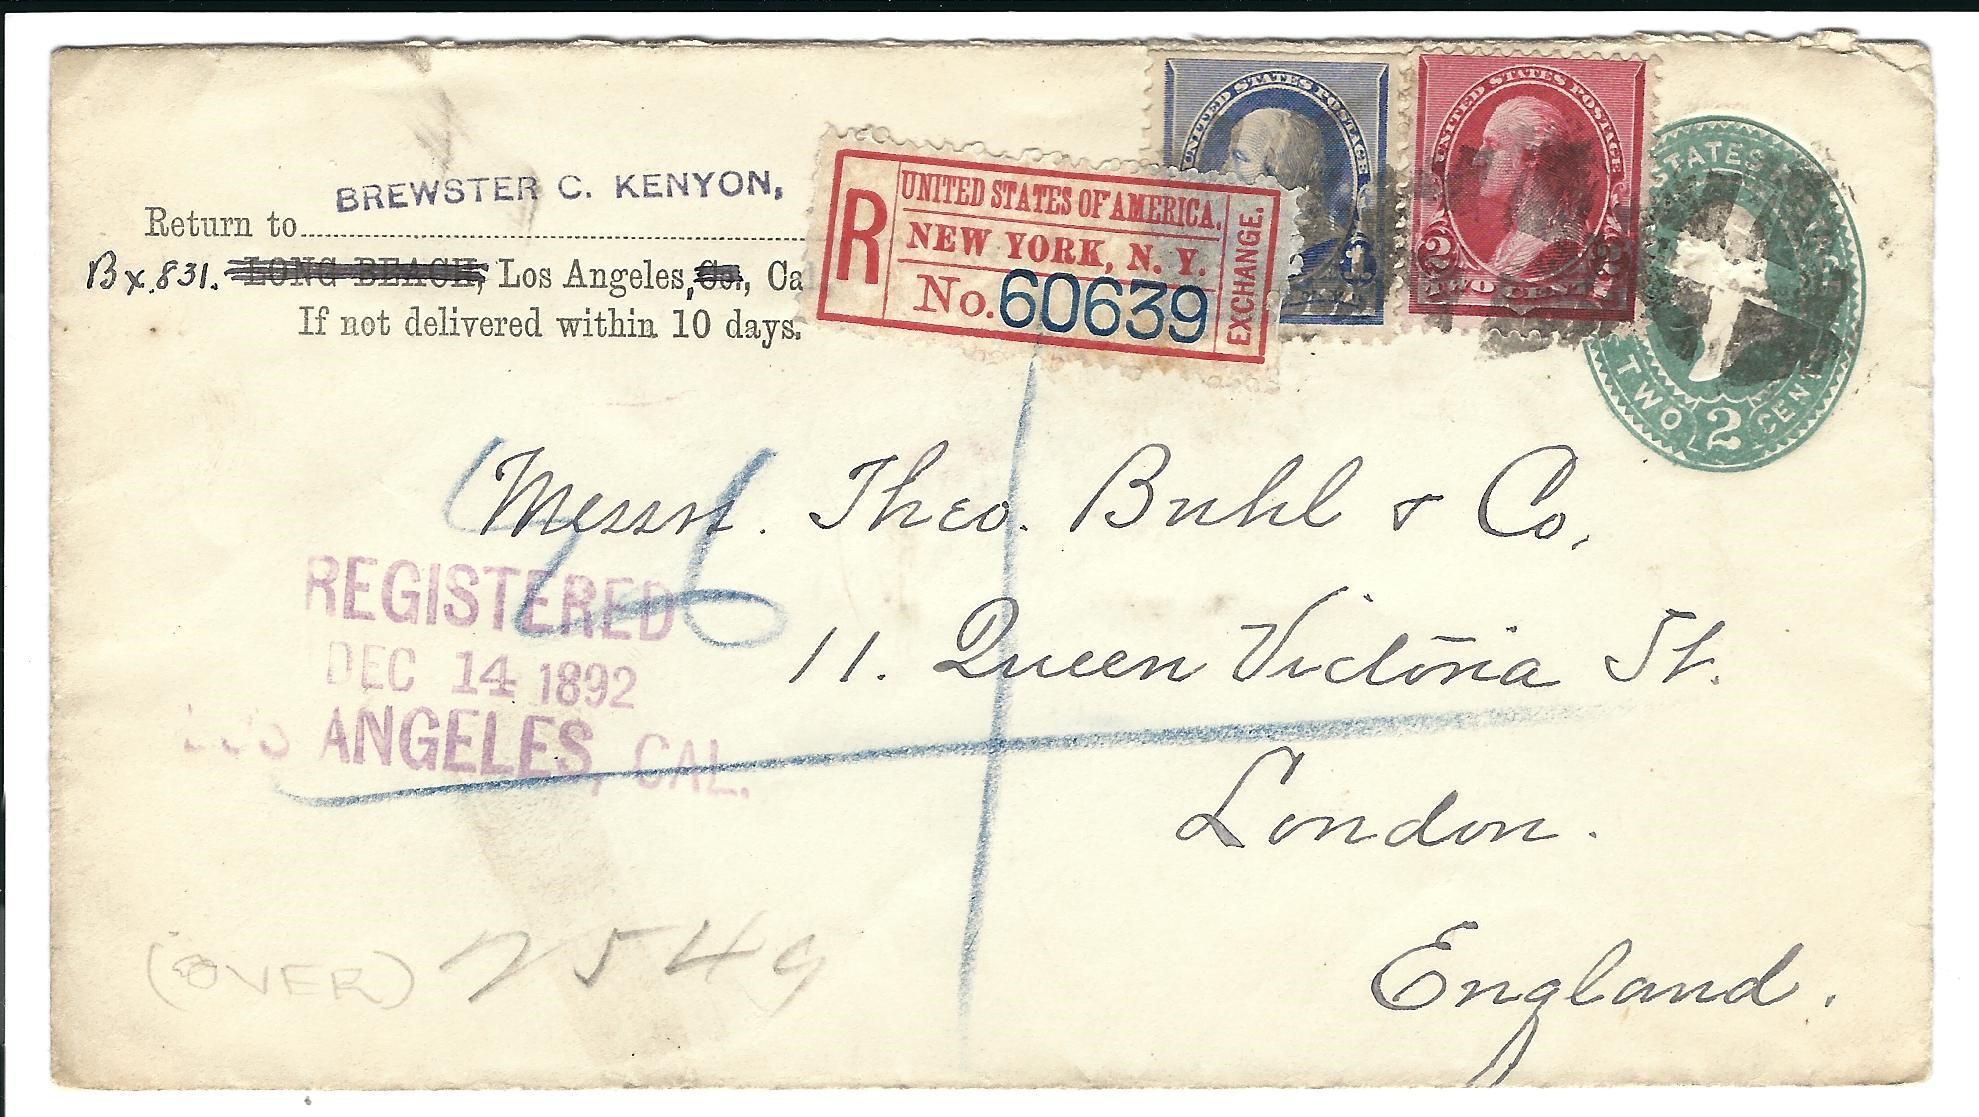 BREWSTER C. KENYON,
Return to
Bx. 831. LONG BEACH, Los Angeles, Co., Ca
If not delivered within 10 days.
R
UNITED STATES OF AMERICA.
NEW YORK, N. Y.
No. 60639
EXCHANGE.
UNITED STATES POSTAGE
1
UNITED STATES POSTAGE
2 2
TWO CENTS
STATES
TWO 2 CENTS
Messrs. Theo. Buhl & Co,
11. Queen Victoria St.
London.
England.
REGISTERED
DEC 14 1892
LOS ANGELES, CAL.
(OVER) 2549